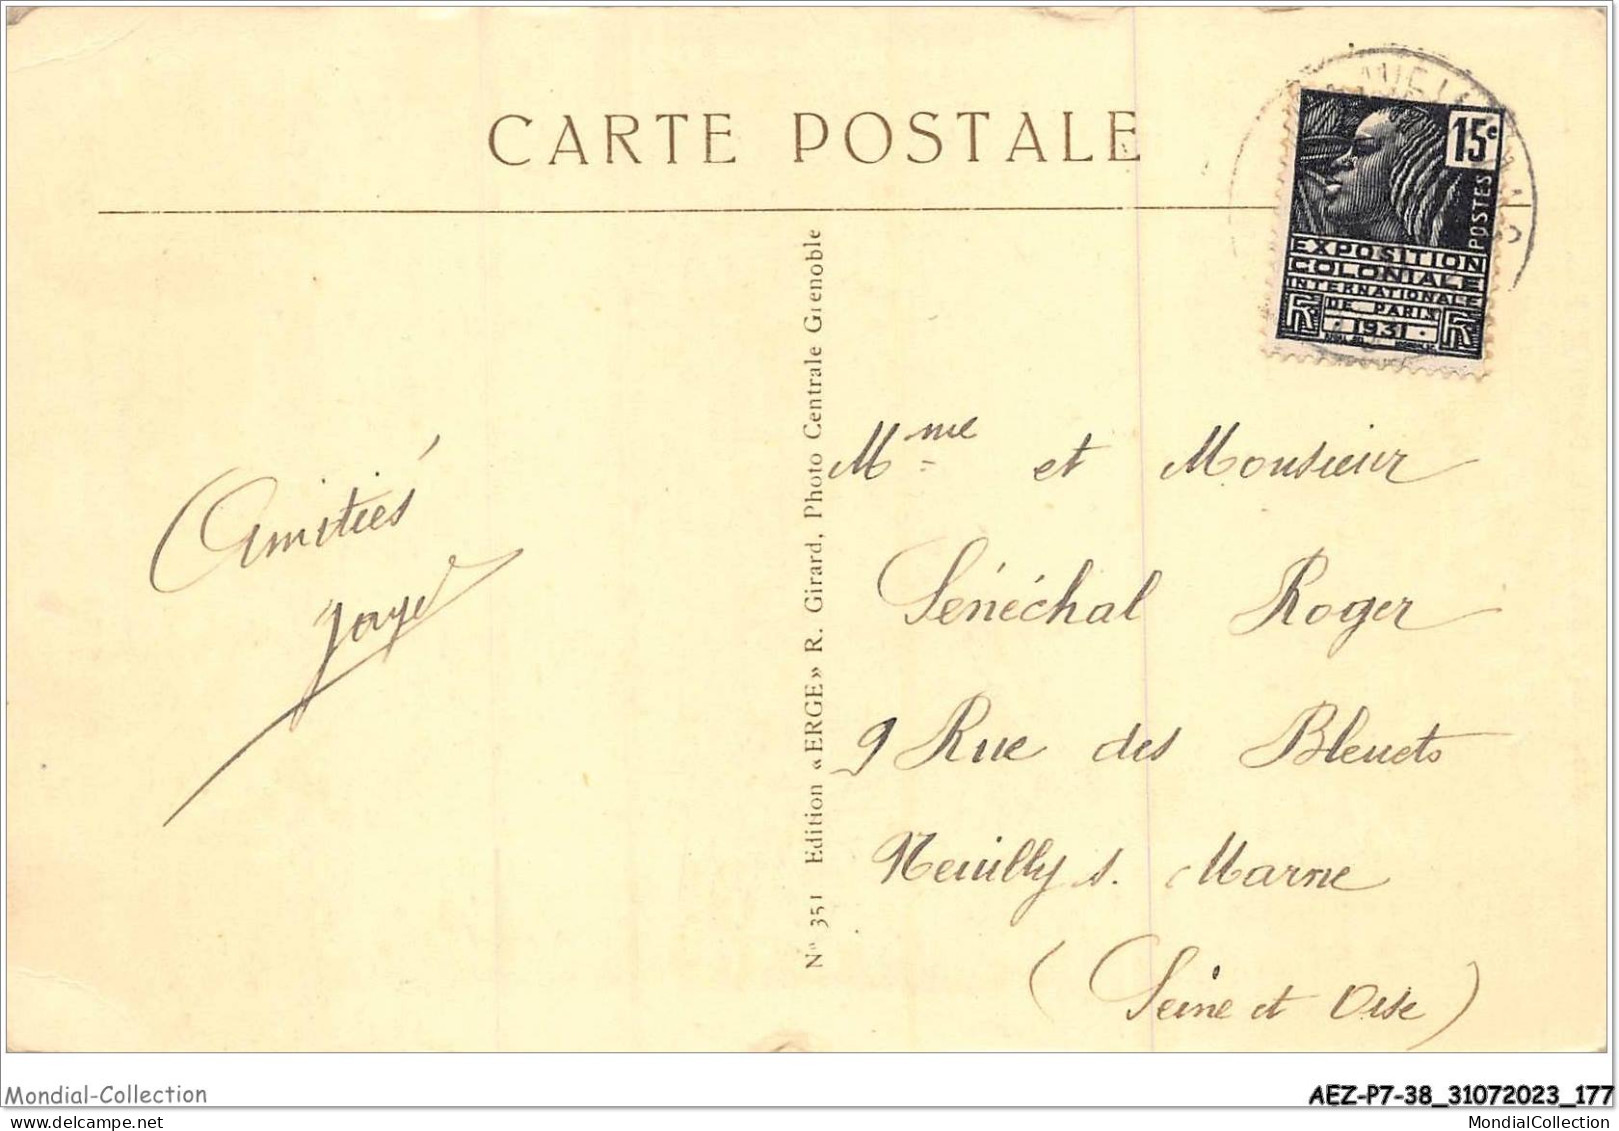 CARTE POSTALE
15c
POSTES
EXPOSITION
COLONIALE
INTERNATIONALE
DE PARIS
1931
RF RF
N° 351 Edition «ERGE» R. Girard, Photo Centrale Grenoble
Amitiés
Mme et Monsieur
Sénéchal Roger
9 Rue des Bleuets
Neuilly s. Marne
(Seine et Oise)
Mondial-Collection
AEZ-P7-38_31072023_177
www.delcampe.net
MondialCollection